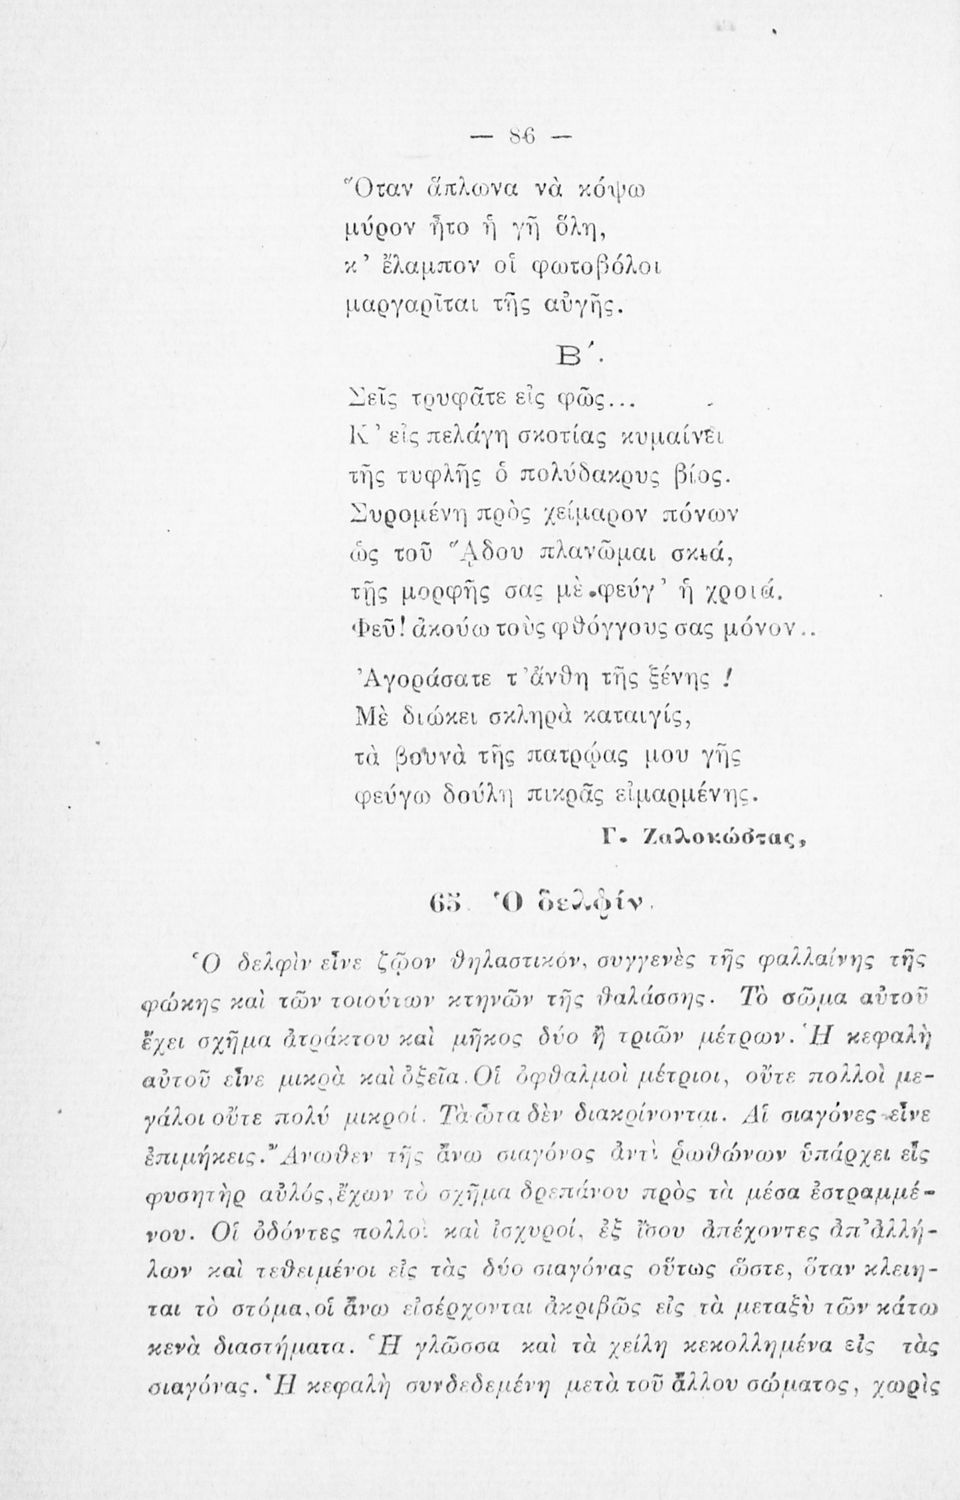 — 86 —
Ὅταν ἅπλωνα νὰ κόψω
μύρον ἦτο ἡ γῆ ὅλη,
κ’ ἔλαμπον οἱ φωτοβόλοι
μαργαρῖται τῆς αὐγῆς.
Β΄.
Σεῖς τρυφᾶτε εἰς φῶς...
Κ’ εἰς πελάγη σκοτίας κυμαίνει
τῆς τυφλῆς ὁ πολύδακρυς βίος.
Συρομένη πρὸς χείμαρον πόνων
ὡς τοῦ ᾍδου πλανῶμαι σκιά,
τῆς μορφῆς σας μὲ φεύγ’ ἡ χροιά.
Φεῦ! ἀκούω τοὺς φθόγγους σας μόνον..
Ἀγοράσατε τ’ ἄνθη τῆς ξένης !
Μὲ διώκει σκληρὰ καταιγίς,
τὰ βουνὰ τῆς πατρῴας μου γῆς
φεύγω δούλη πικρᾶς εἱμαρμένης.
Γ. Ζαλοκώστας,
65. Ὁ δελφίν.
Ὁ δελφὶν εἶνε ζῷον θηλαστικόν, συγγενὲς τῆς φαλλαίνης τῆς
φώκης καὶ τῶν τοιούτων κτηνῶν τῆς θαλάσσης. Τὸ σῶμα αὐτοῦ
ἔχει σχῆμα ἀτράκτου καὶ μῆκος δύο ἢ τριῶν μέτρων. Ἡ κεφαλὴ
αὐτοῦ εἶνε μικρὰ καὶ ὀξεῖα. Οἱ ὀφθαλμοὶ μέτριοι, οὔτε πολλοὶ με-
γάλοι οὔτε πολὺ μικροί. Τὰ ὦτα δὲν διακρίνονται. Αἱ σιαγόνες εἶνε
ἐπιμήκεις. Ἄνωθεν τῆς ἄνω σιαγόνος ἀντὶ ῥωθώνων ὑπάρχει εἷς
φυσητὴρ αὐλός, ἔχων τὸ σχῆμα δρεπάνου πρὸς τὰ μέσα ἐστραμμέ-
νου. Οἱ ὀδόντες πολλοὶ καὶ ἰσχυροί, ἐξ ἴσου ἀπέχοντες ἀπ’ ἀλλή-
λων καὶ τεθειμένοι εἰς τὰς δύο σιαγόνας οὕτως ὥστε, ὅταν κλειη-
ται τὸ στόμα, οἱ ἄνω εἰσέρχονται ἀκριβῶς εἰς τὰ μεταξὺ τῶν κάτω
κενὰ διαστήματα. Ἡ γλῶσσα καὶ τὰ χείλη κεκολλημένα εἰς τὰς
σιαγόνας. Ἡ κεφαλὴ συνδεδεμένη μετὰ τοῦ ἄλλου σώματος, χωρὶς